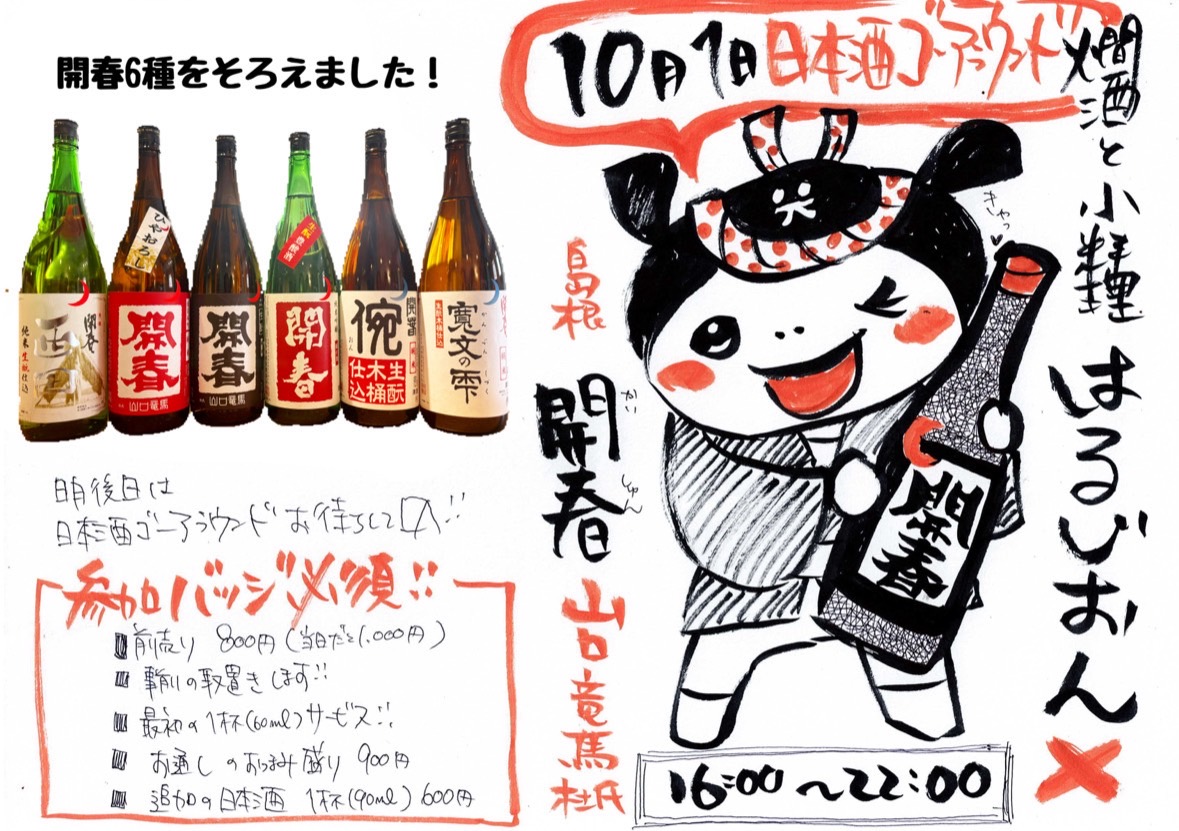 開春6種をそろえました！
西田
開春
純米生酛仕込
ひやおろし
開春
山口竜馬
開春
山口竜馬
開春
俺
開春
生酛
木桶
仕込
寛文の雫
明後日は
日本酒ゴーアラウンドお待ちして〼!!
参加バッジ必須!!
前売り 800円(当日だと1,000円)
事前の取置きします!!
最初の1杯(60ml)サービス!!
お通しのおつまみ盛り 900円
追加の日本酒 1杯(90ml) 600円
10月1日日本酒ゴーアラウンド
燗酒と小料理 はるびおん
きゃっ
島根
開春
かいしゅん
山口竜馬
杜氏
開春
16:00〜22:00